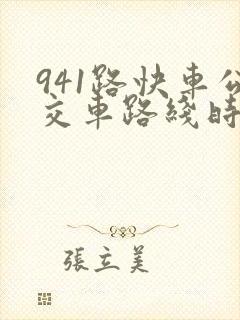 941路快車公
交車路綫時
張立美